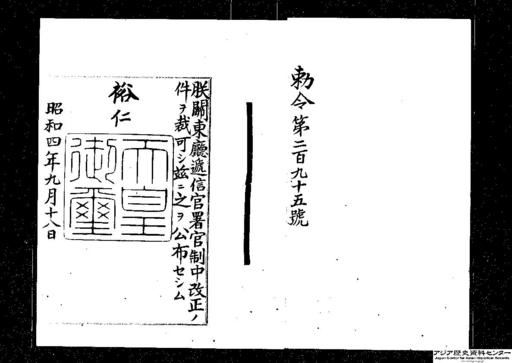 勅令第二百九十五號
朕關東廳遞信官署官制中改正ノ
件ヲ裁可シ茲ニ之ヲ公布セシム
裕仁
天皇
御璽
昭和四年九月十八日
アジア歴史資料センター
Japan Center for Asian Historical Records